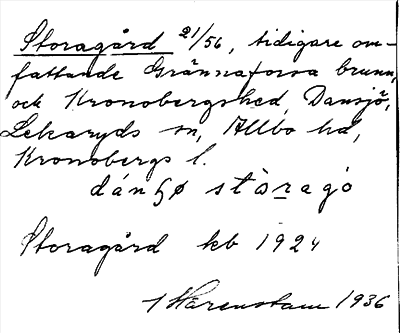 Storagård 21/56, tidigare om-
fattande Grännaforsa brunn,
och Kronobergshed, Dansjö,
Lekaryds sn, Allbo hd,
Kronobergs l.
dánʃø stòragó
Storagård kb 1924
Harenstam 1936